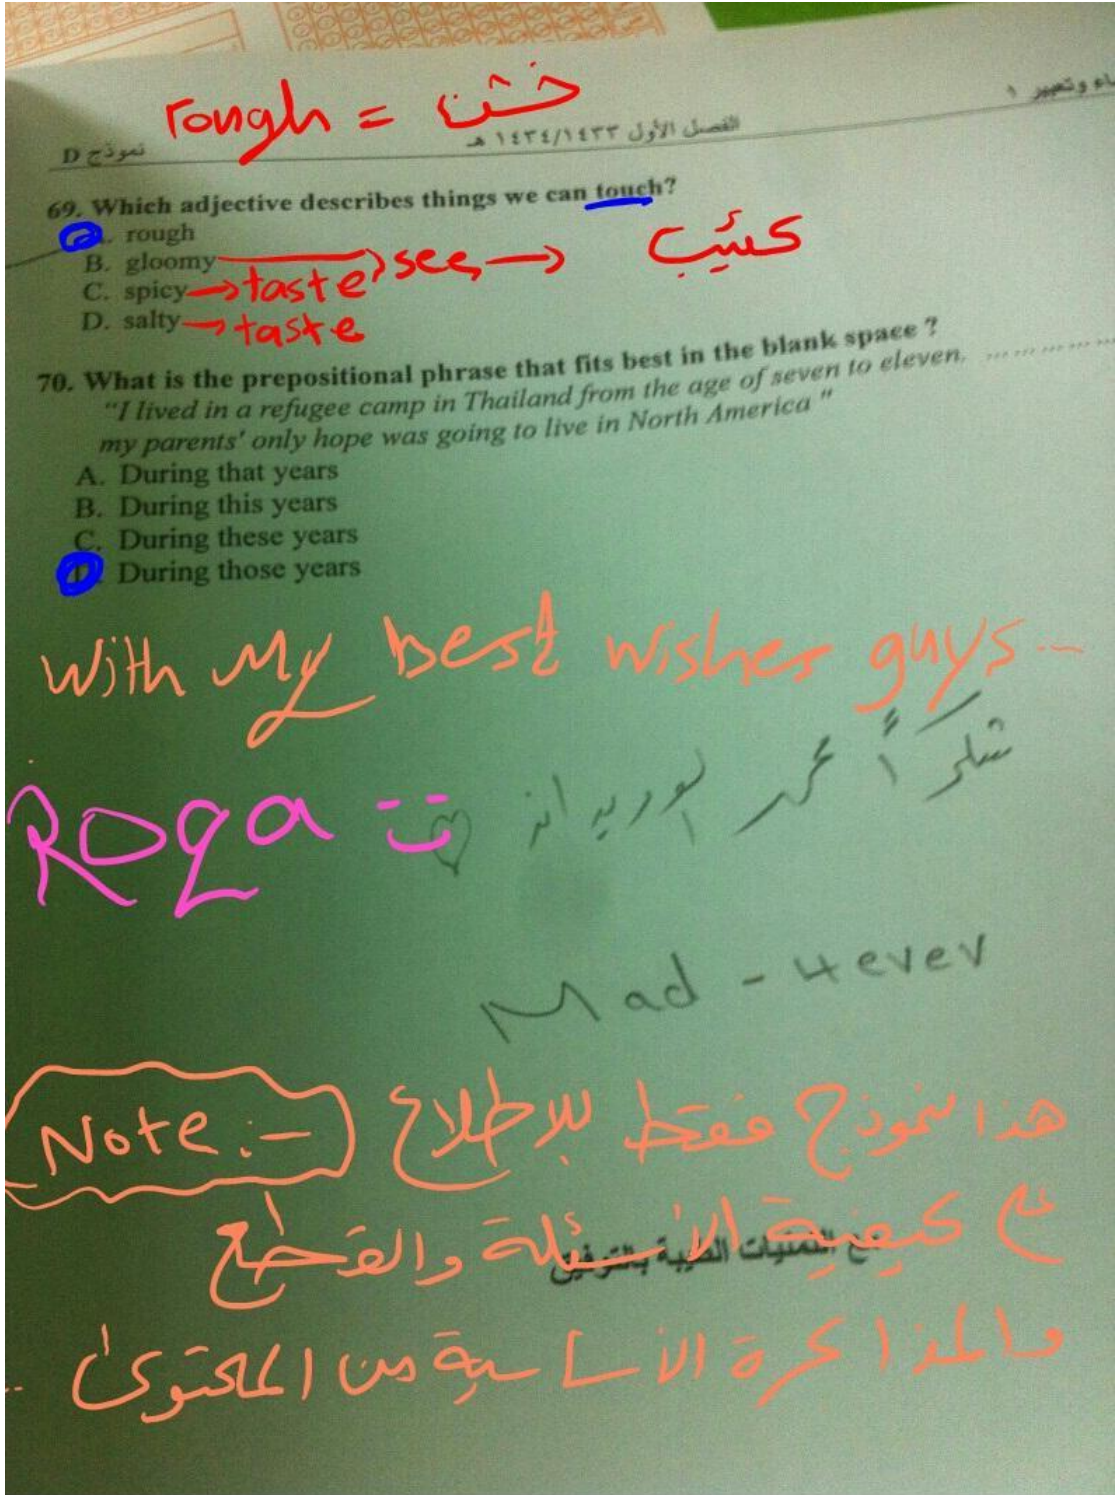 rough = خشن
نموذج D الفصل الأول ١٤٣٤/١٤٣٣ هـ وتعبير ١
69. Which adjective describes things we can touch?
A. rough
B. gloomy → see → كئيب
C. spicy → taste
D. salty → taste
70. What is the prepositional phrase that fits best in the blank space ?
"I lived in a refugee camp in Thailand from the age of seven to eleven. ...............
my parents' only hope was going to live in North America "
A. During that years
B. During this years
C. During these years
D. During those years
With My best wishes guys...
شكراً محمد
Roqa
Mad - 4ever
Note :- هذا نموذج فقط للإطلاع
على كيفية الأسئلة والقطع
مع التمنيات الطيبة بالتوفيق
والمذاكرة الأساسية من المحتوى ..